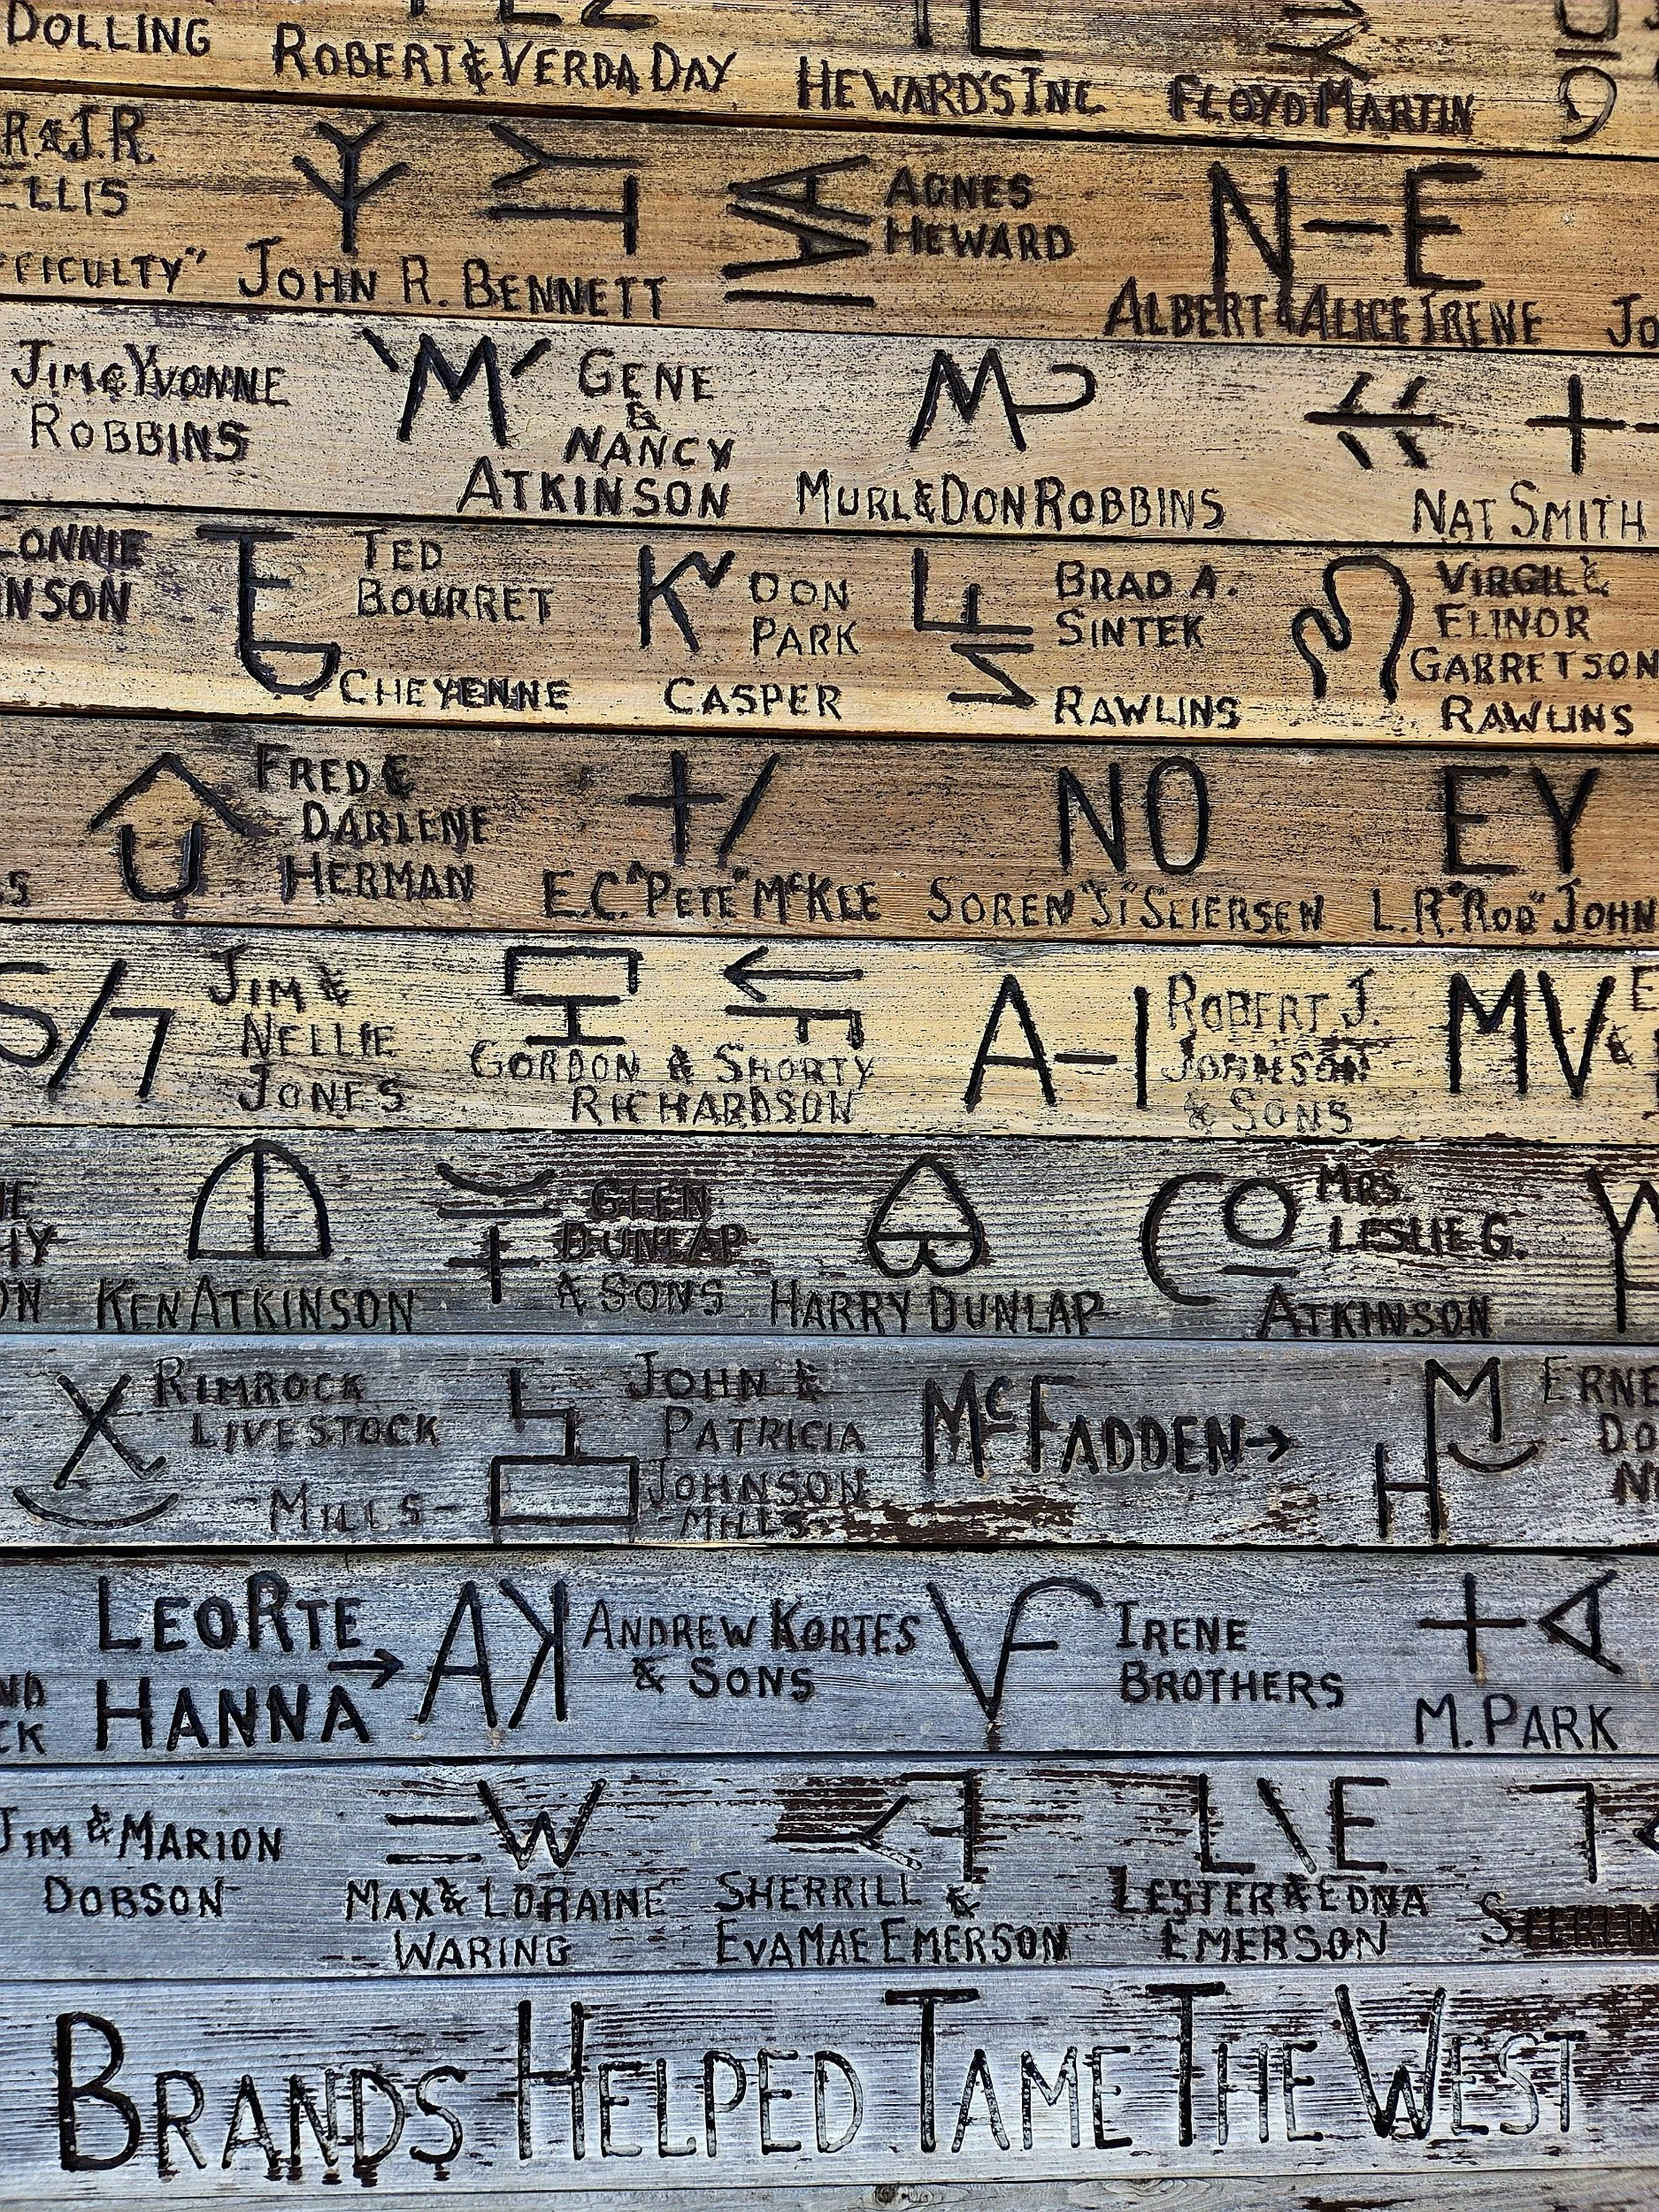 DOLLING
ROBERT & VERDA DAY
HEWARD'S INC.
FLOYD MARTIN
R. & J.R.
ELLIS
FFICULTY"
JOHN R. BENNETT
AGNES
HEWARD
N-E
ALBERT & ALICE IRENE
JO
JIM & YVONNE
ROBBINS
'M'
GENE
&
NANCY
ATKINSON
MURL & DON ROBBINS
NAT SMITH
LONNIE
NSON
TED
BOURRET
CHEYENNE
K
DON
PARK
CASPER
BRAD A.
SINTEK
RAWLINS
VIRGIL &
ELINOR
GARRETSON
RAWLINS
S
FRED &
DARLENE
HERMAN
+/
E.C. "PETE" McKEE
NO
SOREN "SI" SEIERSEN
EY
L.R. "ROD" JOHN
S/7
JIM &
NELLIE
JONES
GORDON & SHORTY
RICHARDSON
A-I
ROBERT J.
JOHNSON
& SONS
MV
E
&
HY
ON
KEN ATKINSON
GLEN
DUNLAP
& SONS
HARRY DUNLAP
CO
MRS.
LESLIE G.
ATKINSON
X
RIMROCK
LIVESTOCK
-MILLS-
JOHN &
PATRICIA
JOHNSON
-MILLS-
McFADDEN→
HM
ERNE
DO
N
ND
CK
LEO RTE
HANNA →
AK
ANDREW KORTES
& SONS
IRENE
BROTHERS
M. PARK
JIM & MARION
DOBSON
=W
MAX & LORAINE
WARING
SHERRILL &
EVAMAE EMERSON
L\E
LESTER & EDNA
EMERSON
STERLIN
BRANDS HELPED TAME THE WEST